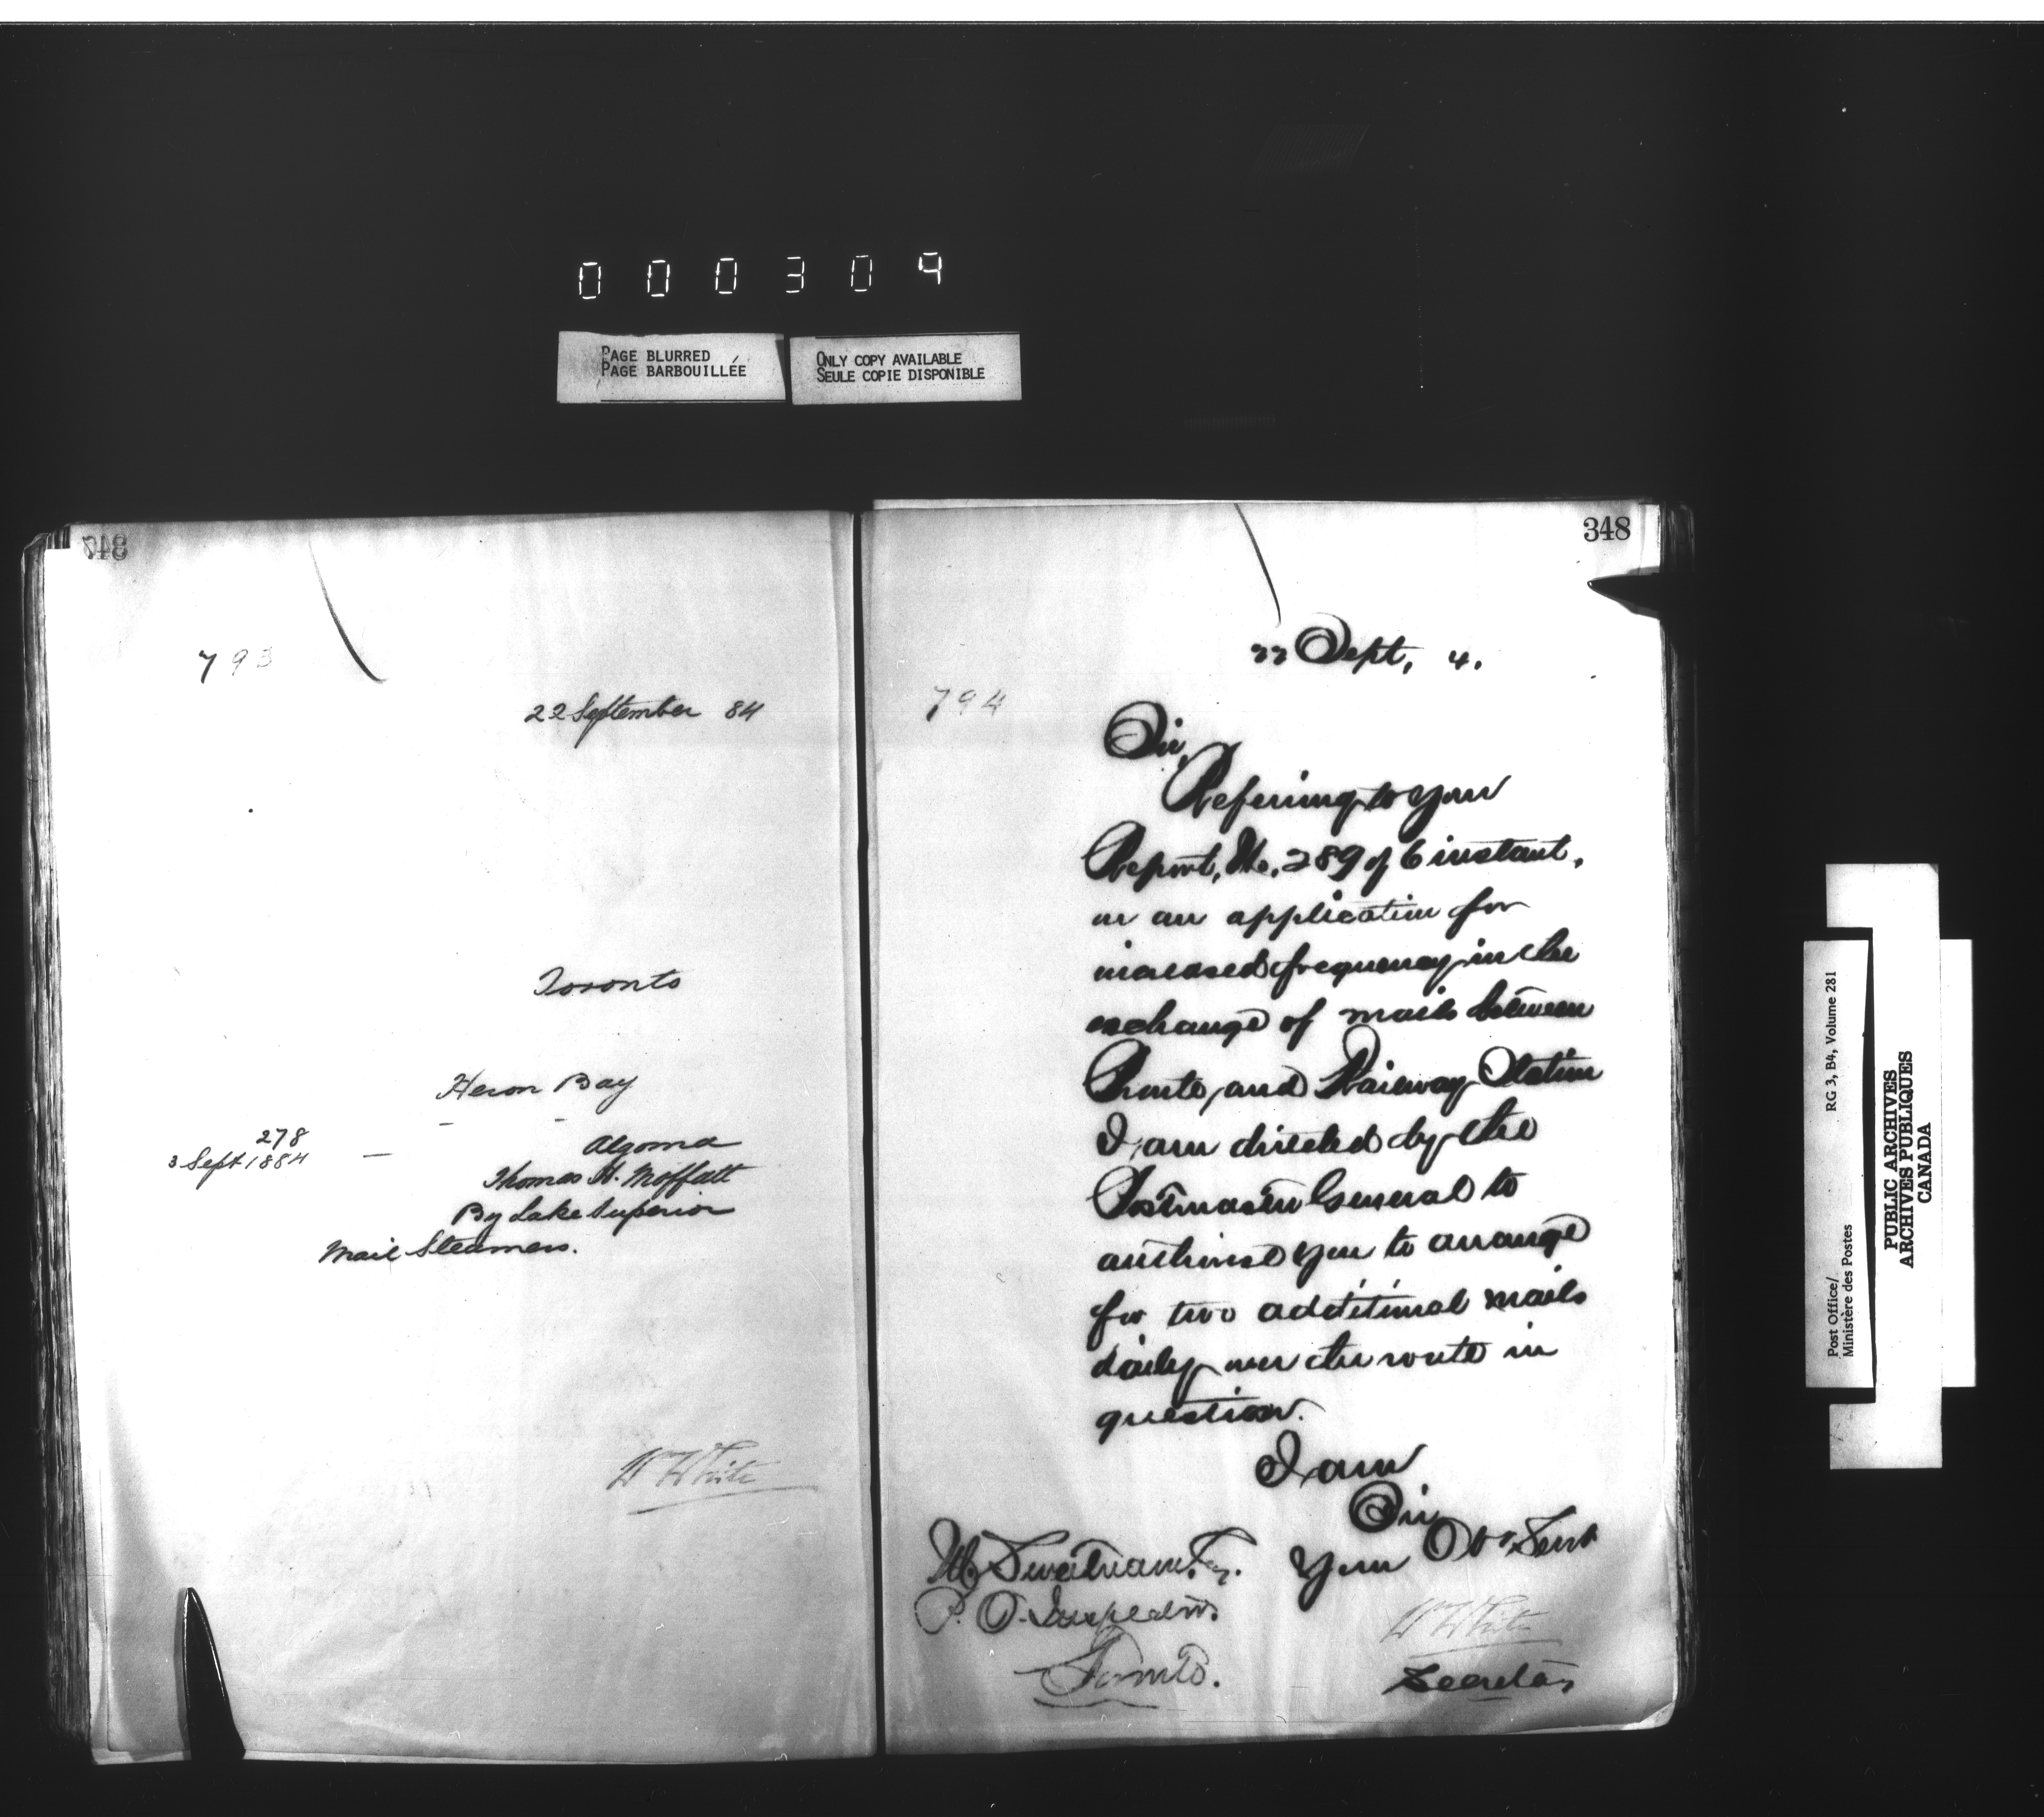 000304
PAGE BLURRED
PAGE BARBOUILLÉE
ONLY COPY AVAILABLE
SEULE COPIE DISPONIBLE
347
793
22 September 84
Toronto
Heron Bay
278
3 Sept 1884 — Algoma
Thomas H. Moffatt
By Lake Superior
Mail Steamers.
W White
348
22 Sept, 4.
794
Sir,
Referring to your
Report, No. 289 of 6 instant,
on an application for
increased frequency in the
exchange of mails between
and Railway Station
I am directed by the
Postmaster General to
authorise you to arrange
for two additional mails
daily over the route in
question.
I am
Sir
Your Obt Servt
M Sweetnam, Esq.
P. O. Inspector.
Toronto.
W White
Secretary
Post Office/
Ministère des Postes
RG 3, B4, Volume 281
PUBLIC ARCHIVES
ARCHIVES PUBLIQUES
CANADA